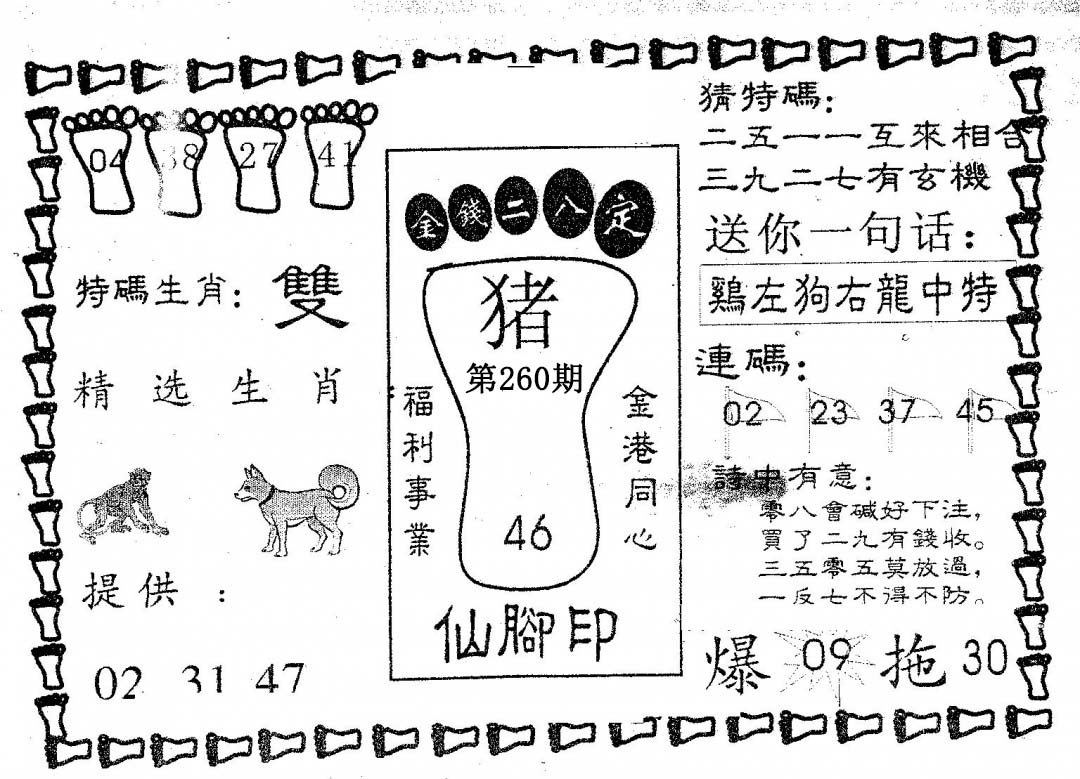 04 38 27 41
特碼生肖：雙
精选生肖
提供：
02 31 47
金錢二八定
猪
第260期
福利事業
金港同心
46
仙腳印
猜特碼：
二五一一互來相合
三九二七有玄機
送你一句话：
鷄左狗右龍中特
連碼：
02 23 37 45
詩中有意：
零八會碱好下注，
買了二九有錢收。
三五零五莫放過，
一反七不得不防。
爆 09 拖 30